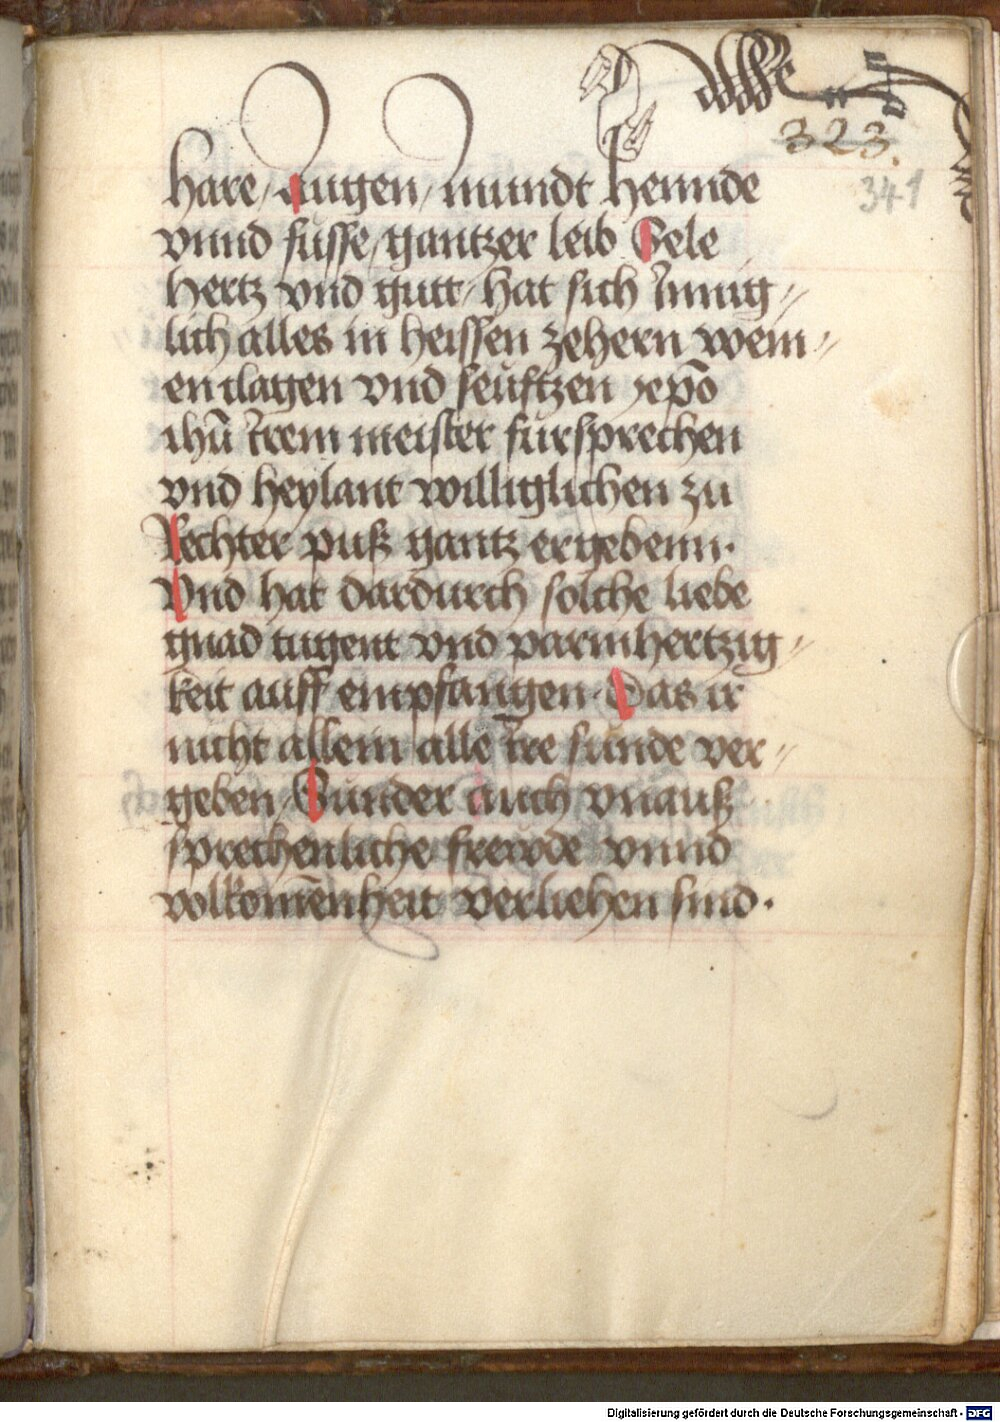 323.
341
hare / augen / mundt hennde
vnnd füsse / gantzer leib Sele
hertz vnd gutt / hat sich Innig //
lich alles in heissen zehern wein //
en clagen vnd seüftzen xepo̅
ihu̅ Irem meister fürsprechen
vnd heylant williglichen zu
Rechter puß gantz ergebenn ·
Vnd hat dardurch solche liebe
gnad tugent vnd parmhertzig //
keit auff empfangen · Das ir
nicht allein alle Ire sunde ver //
geben / Sunder auch vnauß
sprechenliche frewde vnnd
volkome̅nheit verliehen sind ·
Digitalisierung gefördert durch die Deutsche Forschungsgemeinschaft - DFG